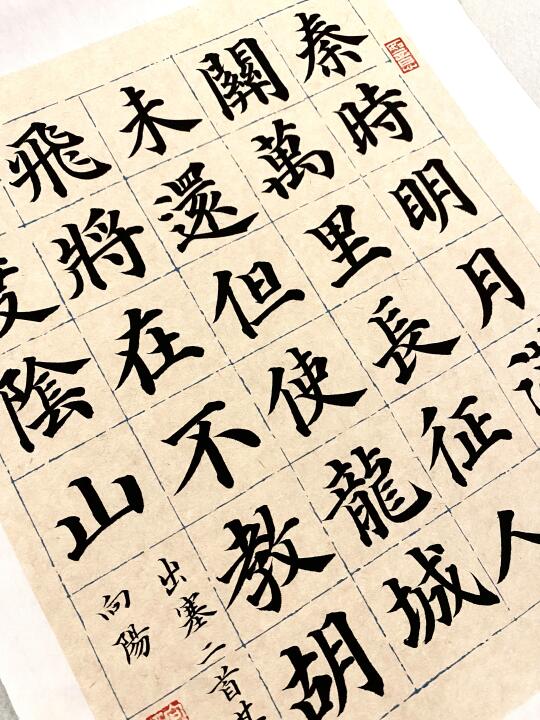 秦時明月
關萬里長征人
未還但使龍城
飛將在不教胡
陰山
出塞二首
向陽